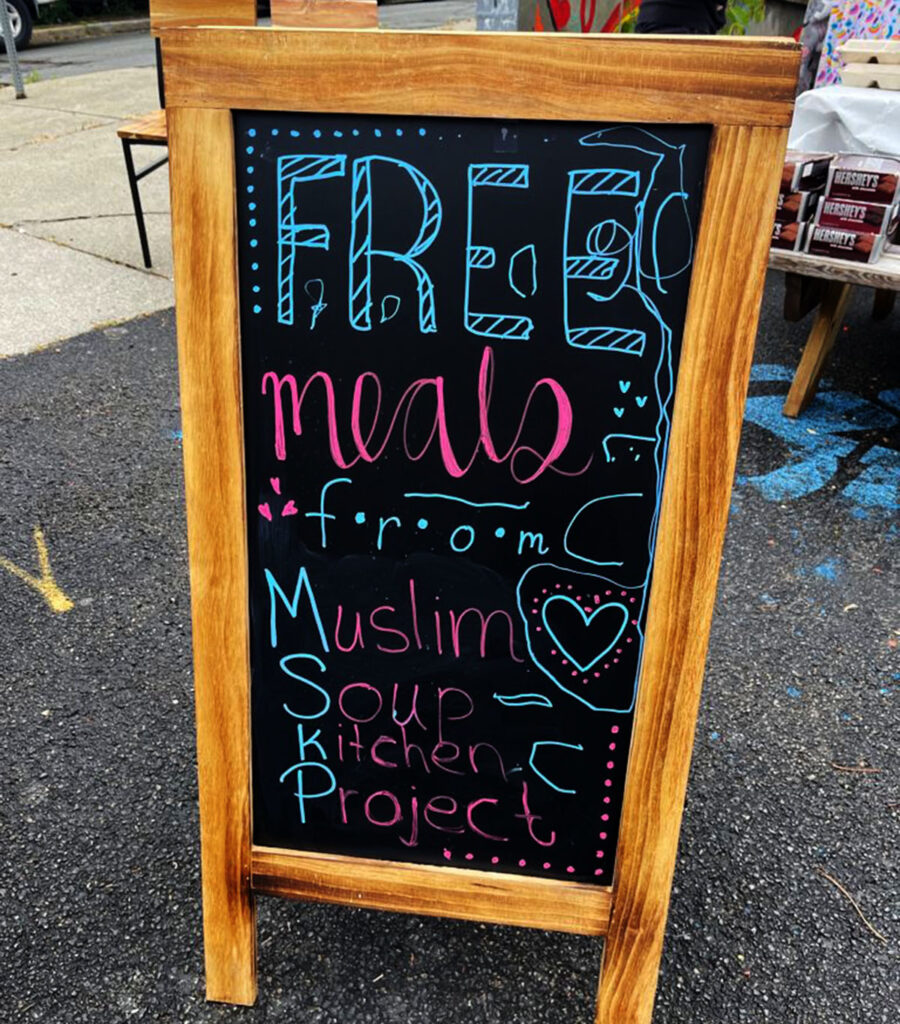 FREE
meals
f.r.o.m
Muslim
Soup
Kitchen
Project
HERSHEY'S
HERSHEY'S
HERSHEY'S